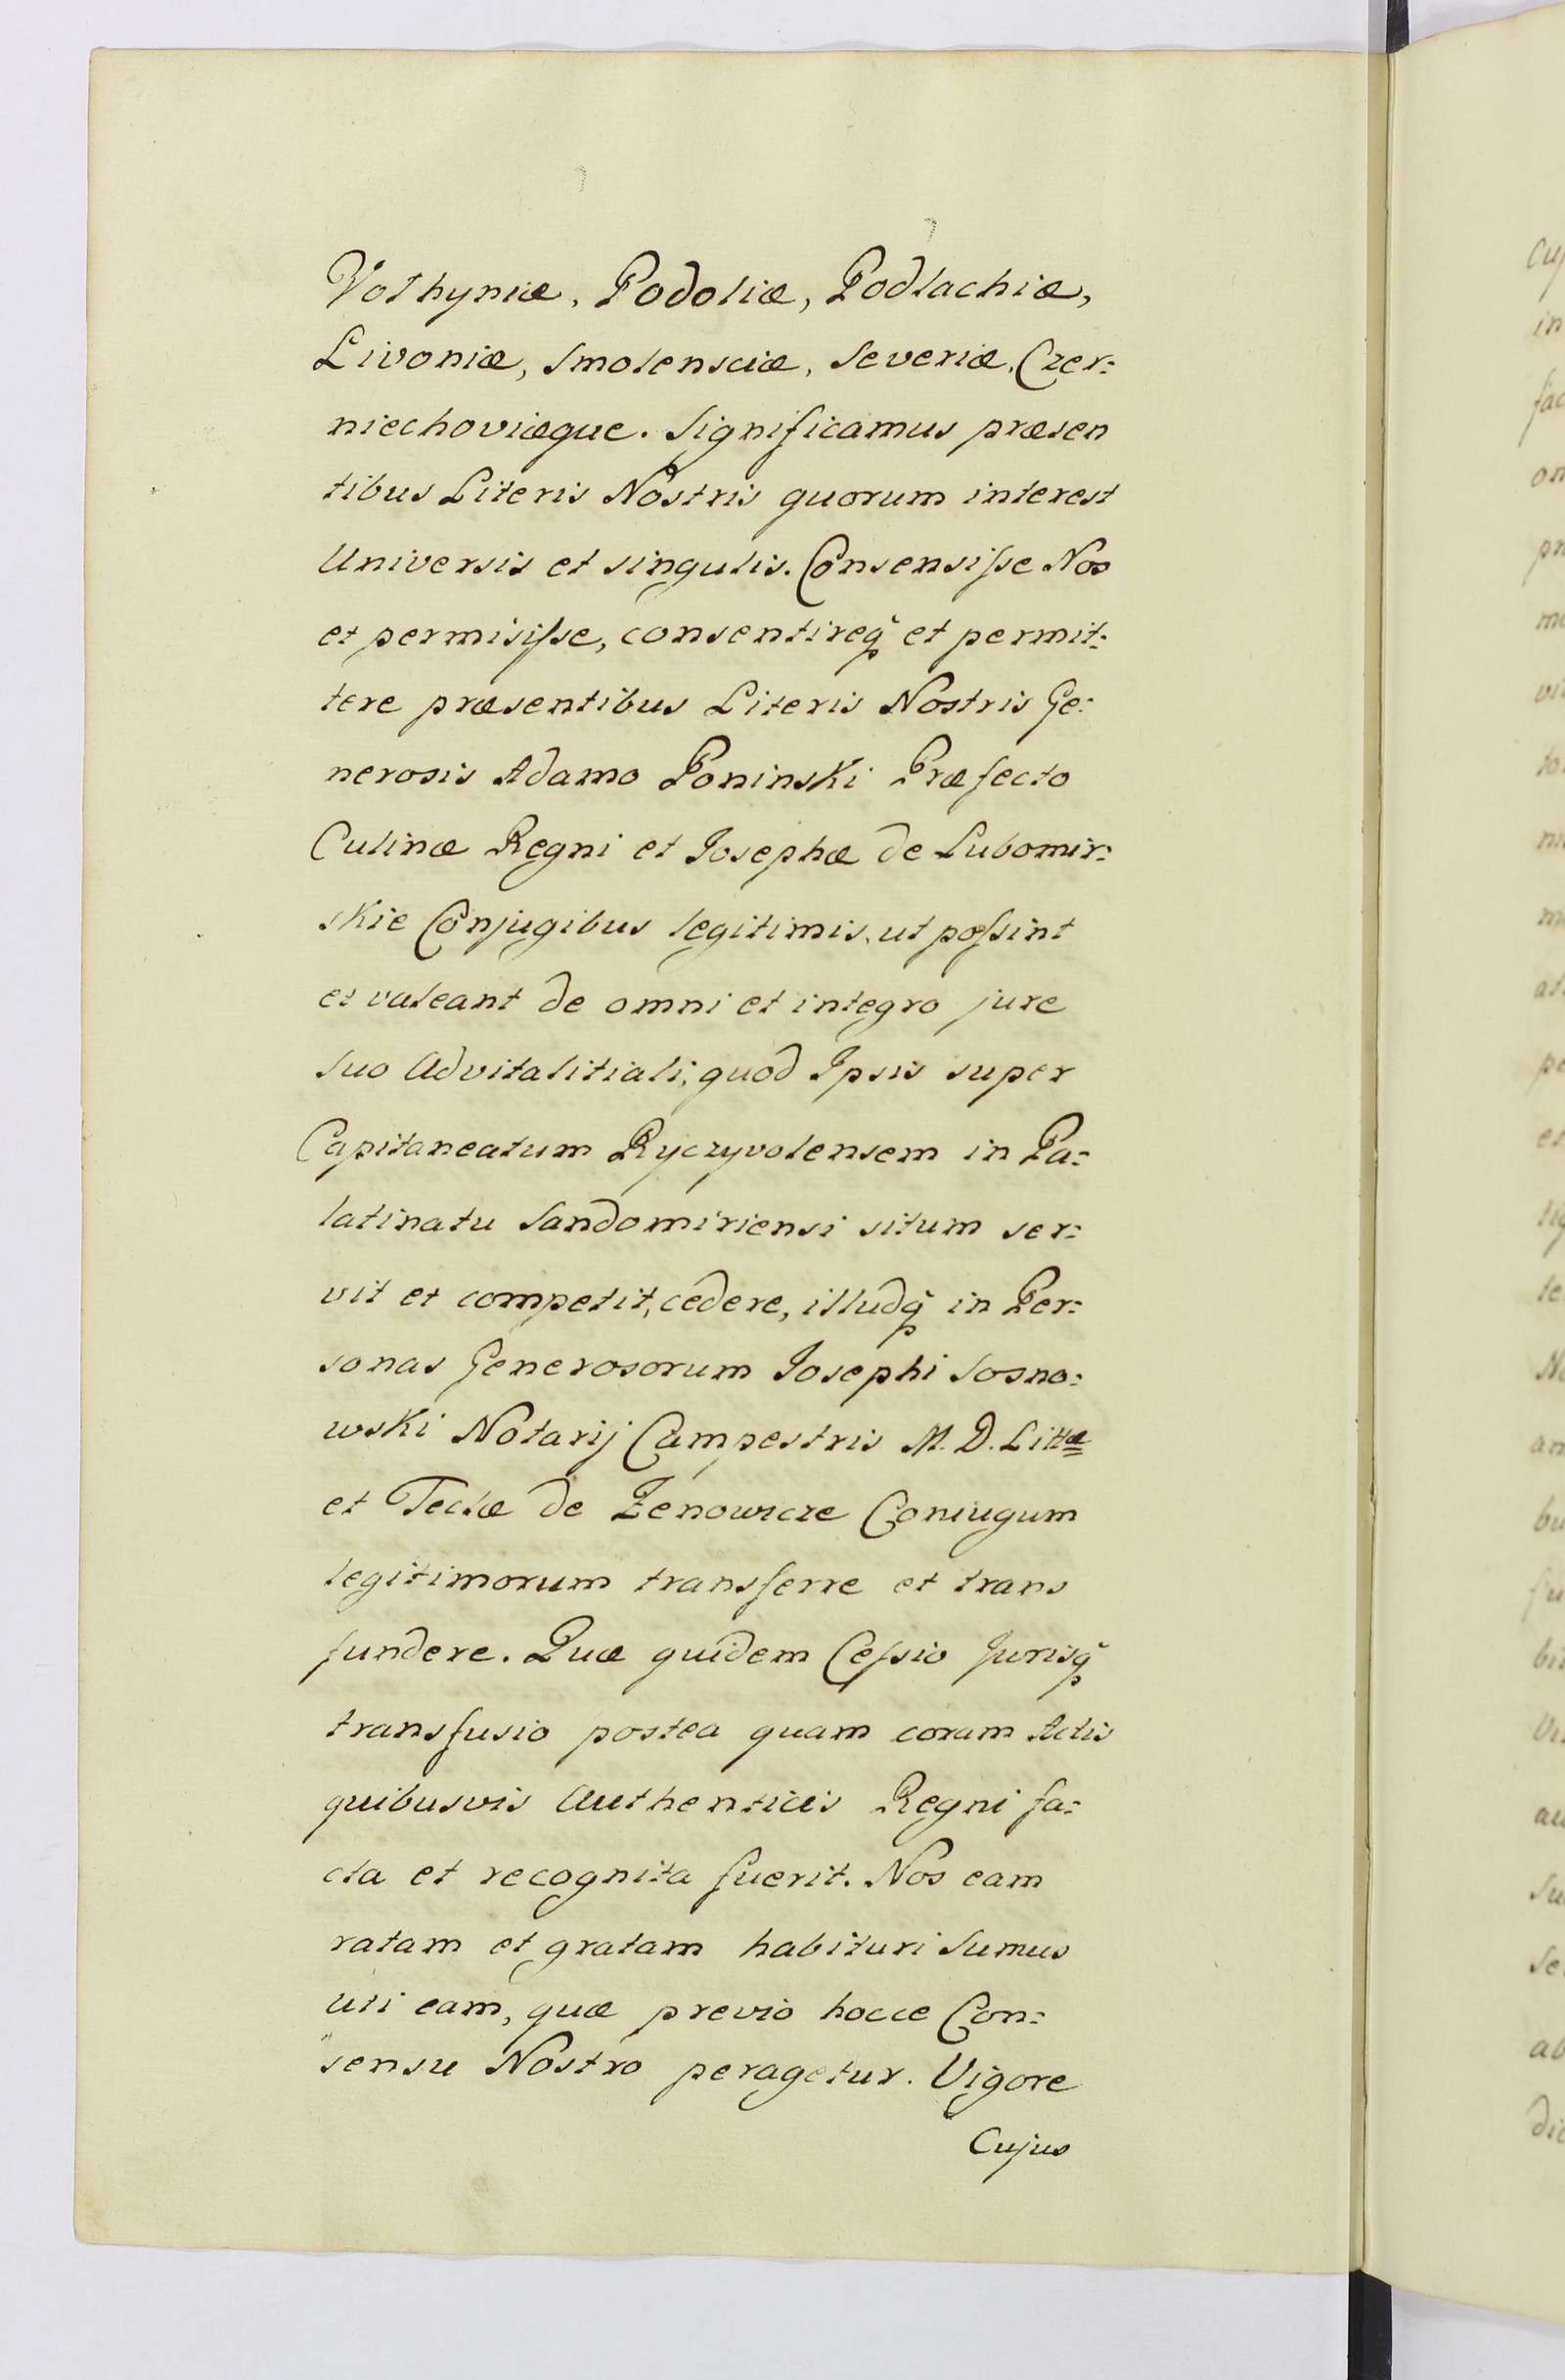 Volhyniæ, Podoliæ, Podlachiæ,
Livoniæ, Smolensciæ, Severiæ, Czer:
niechoviæque. Significamus præsen
tibus Literis Nostris quorum interest
Universis et singulis. Consensiſse Nos
et permisiſse, consentireq̃ et permit:
tere præsentibus Literis Nostris Ge:
nerosis Adamo Poninski Præfecto
Culinæ Regni et Josephæ de Lubomir:
skie Conjugibus legitimis, ut poſsint
et valeant de omni et integro jure
suo Advitalitiali, quod Ipsis super
Capitaneatum Ryczyvolensem in Pa:
latinatu Sandomiriensi situm ser:
vit et competit, cedere, illudq̃ in Per:
sonas Generosorum Josephi Sosno:
wski Notarij Campestris M. D. Littæ
et Teclæ de Zenowicze Coniugum
legitimorum transferre et trans
fundere. Quæ quidem Ceſsio Jurisq̃
transfusio postea quam coram Actis
quibusvis Authenticis Regni fa:
cta et recognita fuerit. Nos eam
ratam et gratam habituri sumus
uti eam, quæ previo hocce Con:
sensu Nostro peragetur. Vigore
Cujus